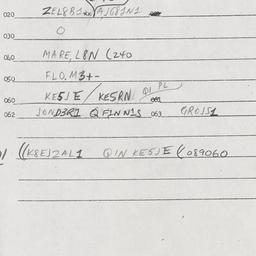 020 ZEL8B1 AJG81N1
030 O
040 MARE, L8N (240
050 FLO, M3+-
060 KE5JE / KE5RN QI PL
062 JOND3R1 QF1NN1S 063 GROJS1
((K8EJZAL1 QIN KE5JE (089060